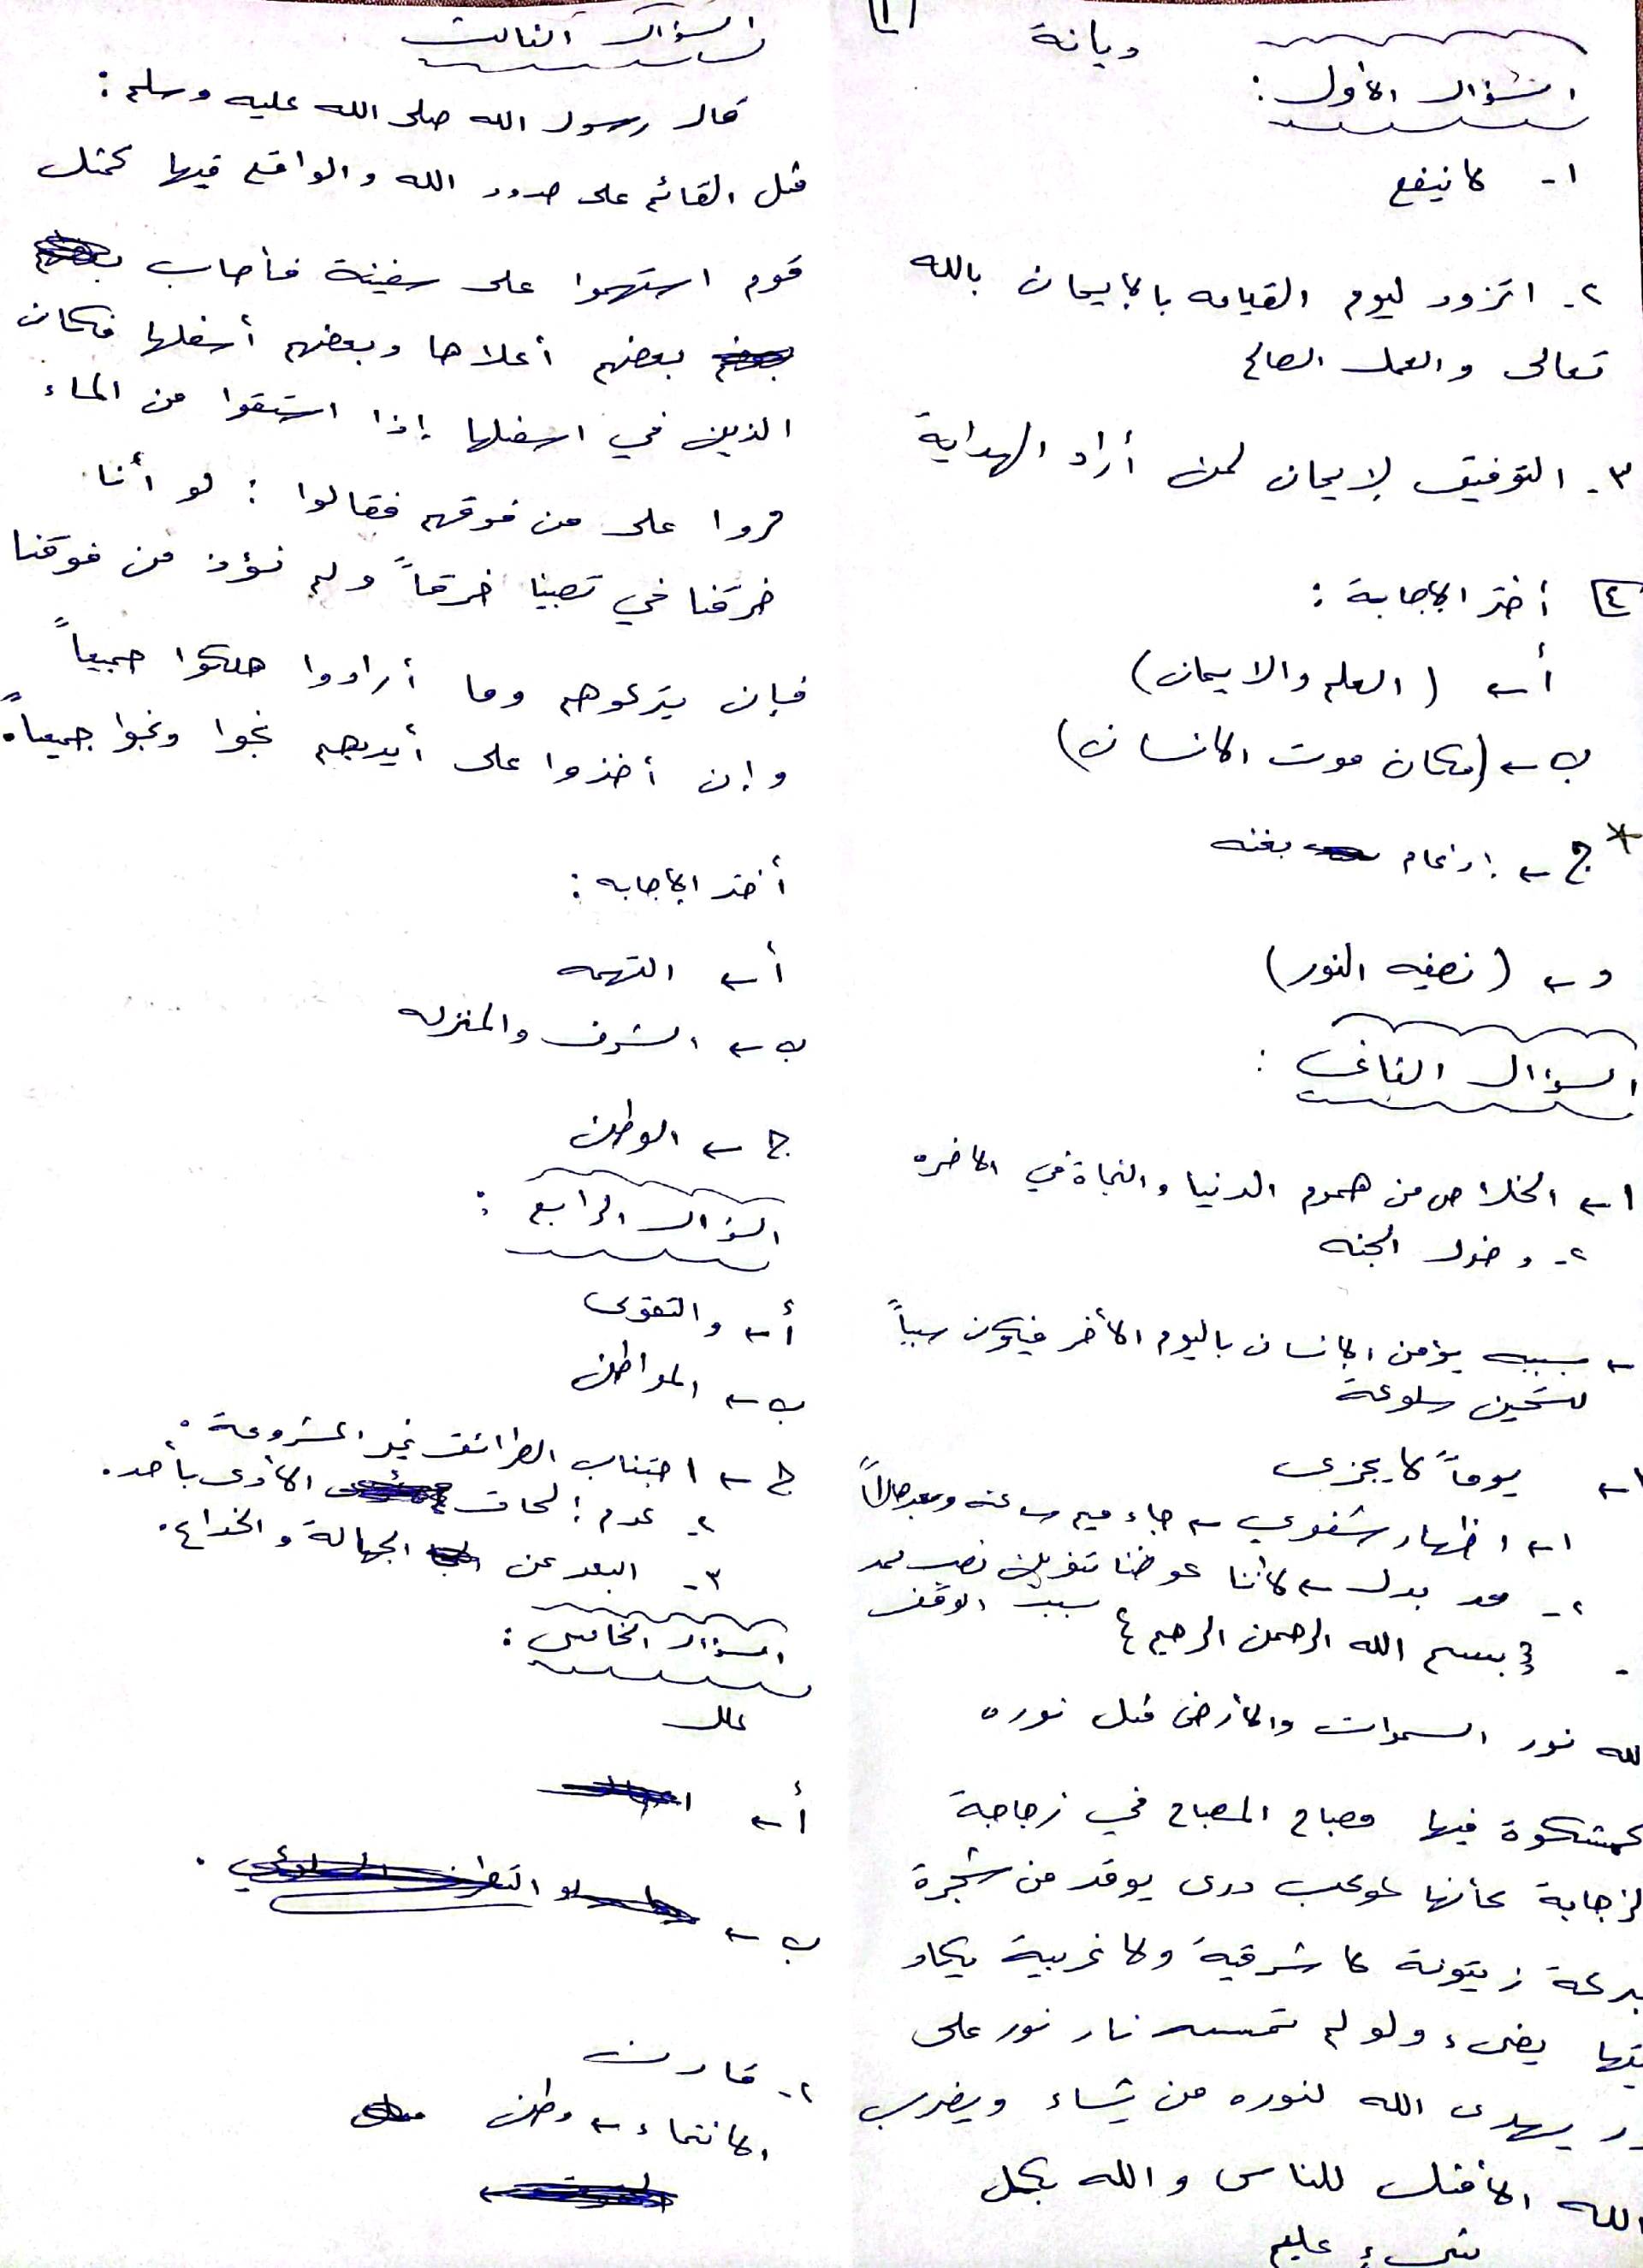 ديانة
السؤال الأول :
١- لا ينفع
٢- اتزود ليوم القيامه بالإيمان بالله
تعالى والعمل الصالح
٣- التوفيق لإيمان لمن أراد الهداية
٤ أختر الإجابة :
أ ← ( العلم والايمان )
ب ← (مكان موت الانسان)
* ج ← إدغام بغنه
د ← ( نصفيه النور )
السؤال الثاني :
١ ← الخلاص من هموم الدنيا والنجاة في الاخره
٢- دخول الجنه
← بسببه يؤمن الإنسان باليوم الأخر فيكون سبباً
لتحسين سلوكة
← يوماً لا يجزى
١ ← اظهار شفوي ← جاء ميم ساكنه وبعدها
٢- مد بدل ← لأننا عوضنا تنوين نصب مد
بسبب الوقف
{ بسم الله الرحمن الرحيم }
لله نور السموات والأرض مثل نوره
كمشكوة فيها مصباح المصباح في زجاجة
لزجاجة كأنها كوكب درى يوقد من شجرة
بركة زيتونة لا شرقية ولا غربية يكاد
يتها يضىء ولو لم تمسسه نار نور على
ور يهدى الله لنوره من يشاء ويضرب
الله الأمثل للناس والله بكل
شىء عليم
السؤال الثالث
قال رسول الله صلى الله عليه وسلم :
مثل القائم على حدود الله والواقع فيها كمثل
قوم استهموا على سفينة فأصاب
بعضهم أعلاها وبعضهم أسفلها فكان
الذين في اسفلها إذا استقوا من الماء
مروا على من فوقهم فقالوا : لو أنا
خرقنا في نصيبنا خرقاً ولم نؤذ من فوقنا
فإن يتركوهم وما أرادوا هلكوا جميعاً
وإن أخذوا على أيديهم نجوا ونجوا جميعاً.
أختر الإجابه :
أ ← التهمه
ب ← الشرف والمنزله
ج ← الوطن
السؤال الرابع :
أ ← والتقوى
ب ← المواطن
ج ← ١ اجتناب الطرائق غير المشروعة .
٢- عدم إلحاق الأذى بأحد.
٣- البعد عن الجهالة والخداع.
السؤال الخامس :
علل
أ ←
ب ←
٢- قارن
الانتماء ← وطن